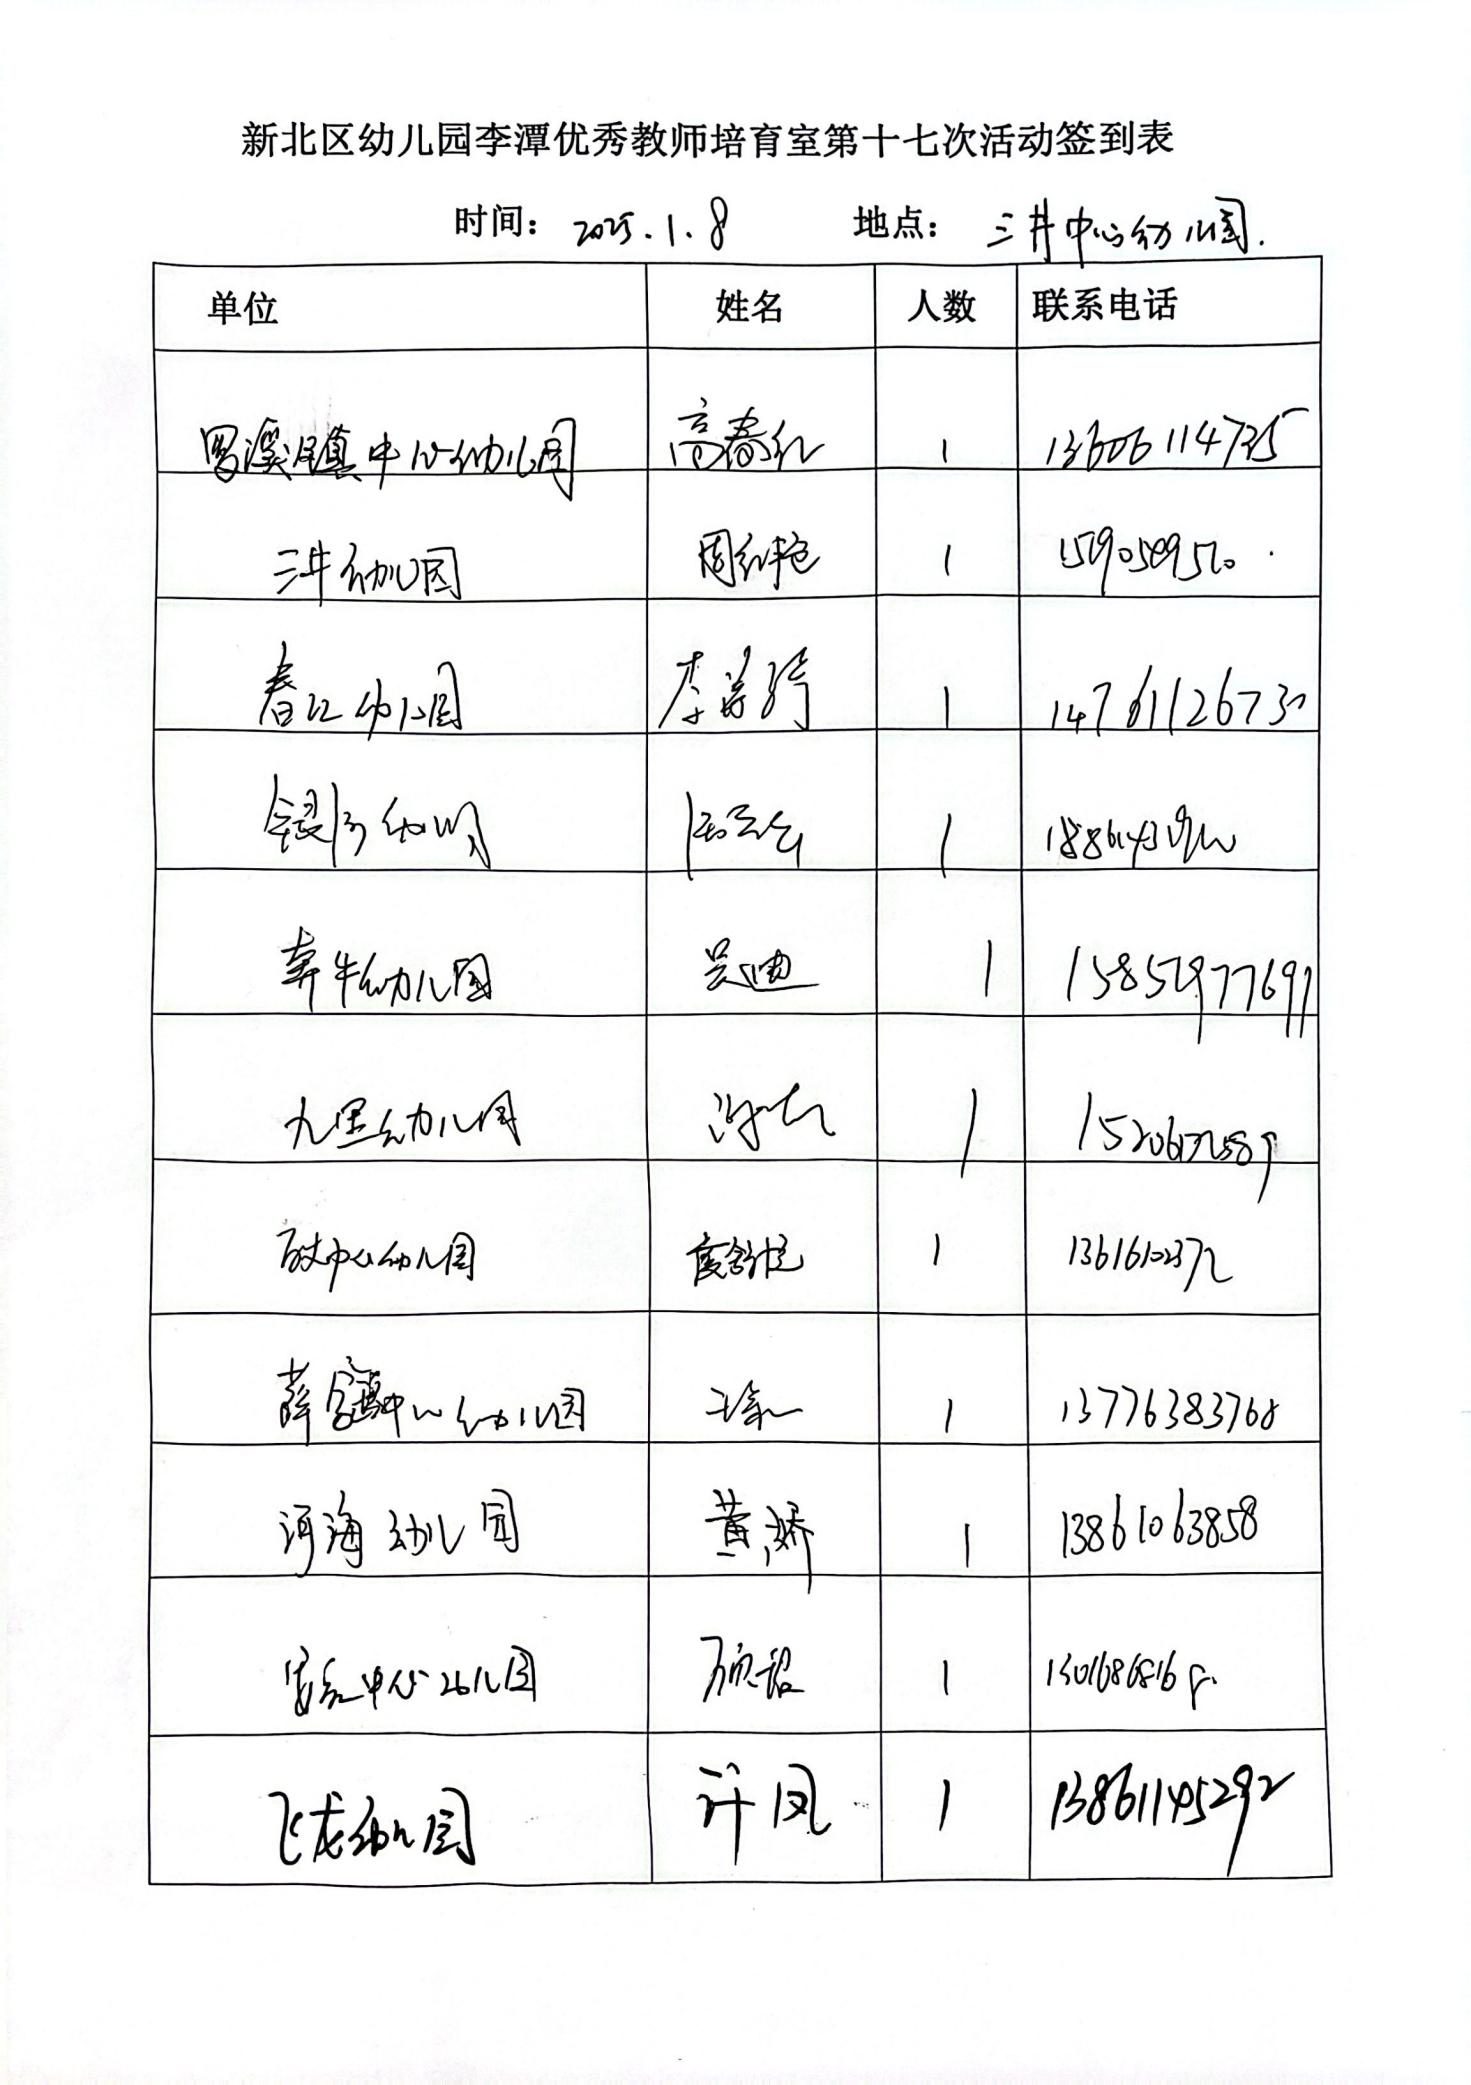 新北区幼儿园李潭优秀教师培育室第十七次活动签到表
时间: 2025.1.8 地点: 三井中心幼儿园.
单位 姓名 人数 联系电话
罗溪镇中心幼儿园 高春红 1 13606114735
三井幼儿园 1
春江幼儿园 1 1476112673
银河幼儿园 1
奔牛幼儿园 吴迪 1 15851977691
九里幼儿园 1
中心幼儿园 1 13616102372
薛家镇中心幼儿园 1 13776383768
河海幼儿园 黄娇 1 13861063858
中心幼儿园 1
飞龙幼儿园 许凤 1 13861145292